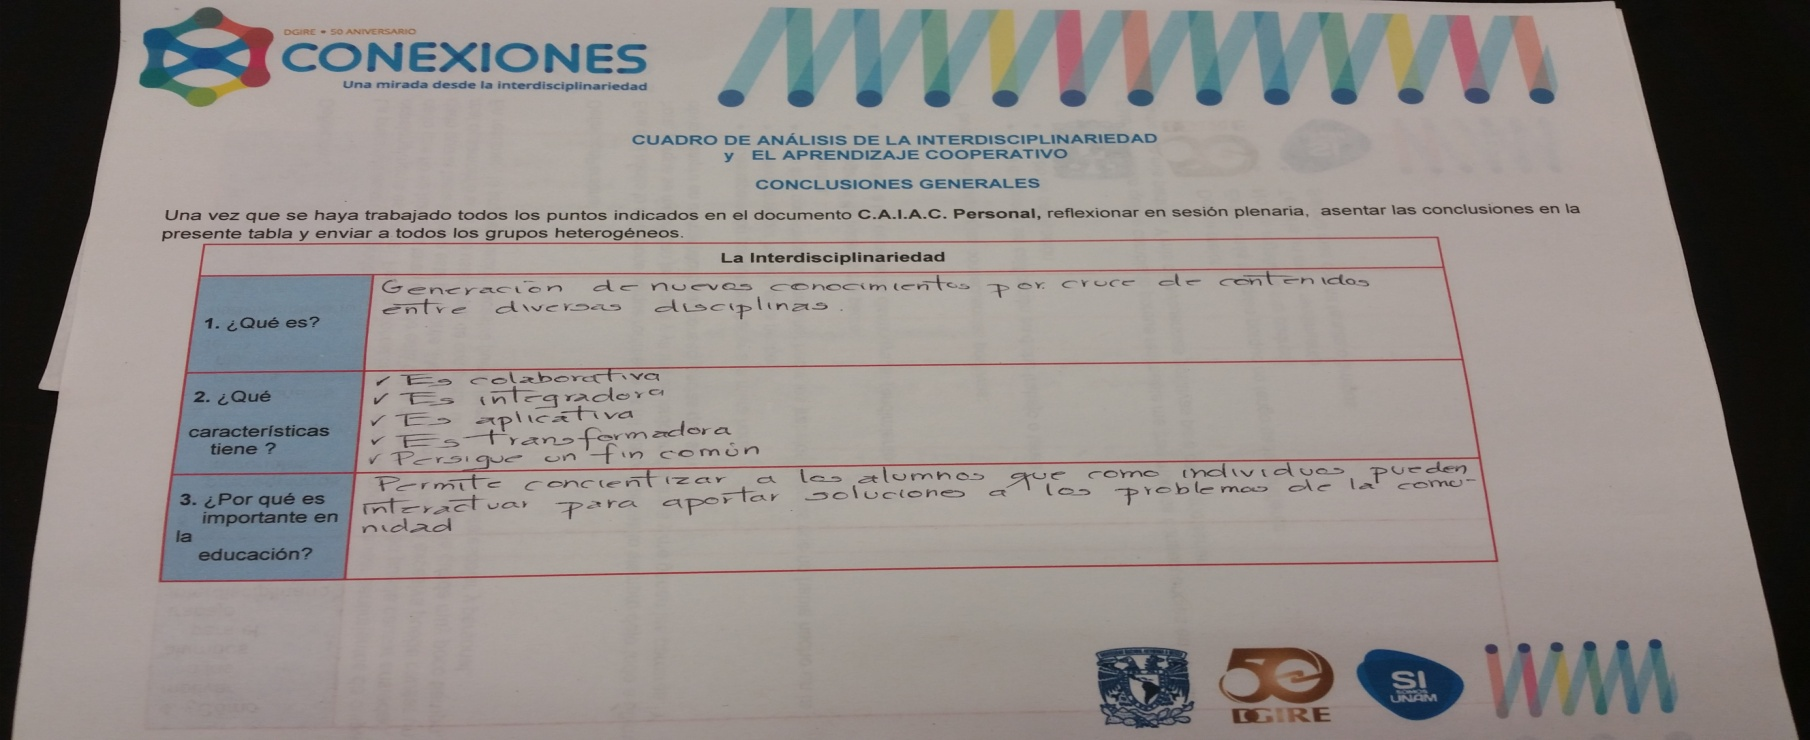 DGIRE • 50 ANIVERSARIO
CONEXIONES
Una mirada desde la interdisciplinariedad
CUADRO DE ANÁLISIS DE LA INTERDISCIPLINARIEDAD
y EL APRENDIZAJE COOPERATIVO
CONCLUSIONES GENERALES
Una vez que se haya trabajado todos los puntos indicados en el documento C.A.I.A.C. Personal, reflexionar en sesión plenaria, asentar las conclusiones en la
presente tabla y enviar a todos los grupos heterogéneos.
La Interdisciplinariedad
1. ¿Qué es?
Generación de nuevos conocimientos por cruce de contenidos
entre diversas disciplinas.
2. ¿Qué
características
tiene ?
✓ Es colaborativa
✓ Es integradora
✓ Es aplicativa
✓ Es transformadora
✓ Persigue un fin común
3. ¿Por qué es
importante en
la
educación?
Permite concientizar a los alumnos que como individuos pueden
interactuar para aportar soluciones a los problemas de la comu-
nidad
50
DGIRE
SI
SOMOS
UNAM